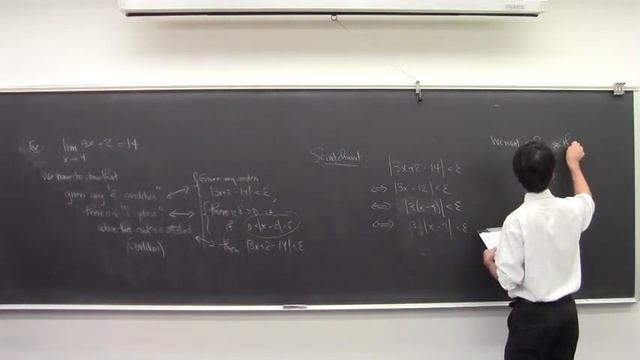 Ex
lim 3x+2=14
x→4
We have to show that
given any "ε condition"
there is a "δ place"
where the
(condition)
Given any
|3x+2-14|<ε
there is δ>0 s.t.
if 0<|x-4|<δ
then |3x+2-14|<ε
Scratchwork:
|3x+2-14|<ε
⇔ |3x-12|<ε
⇔ |3(x-4)|<ε
⇔ 3|x-4|<ε
We need